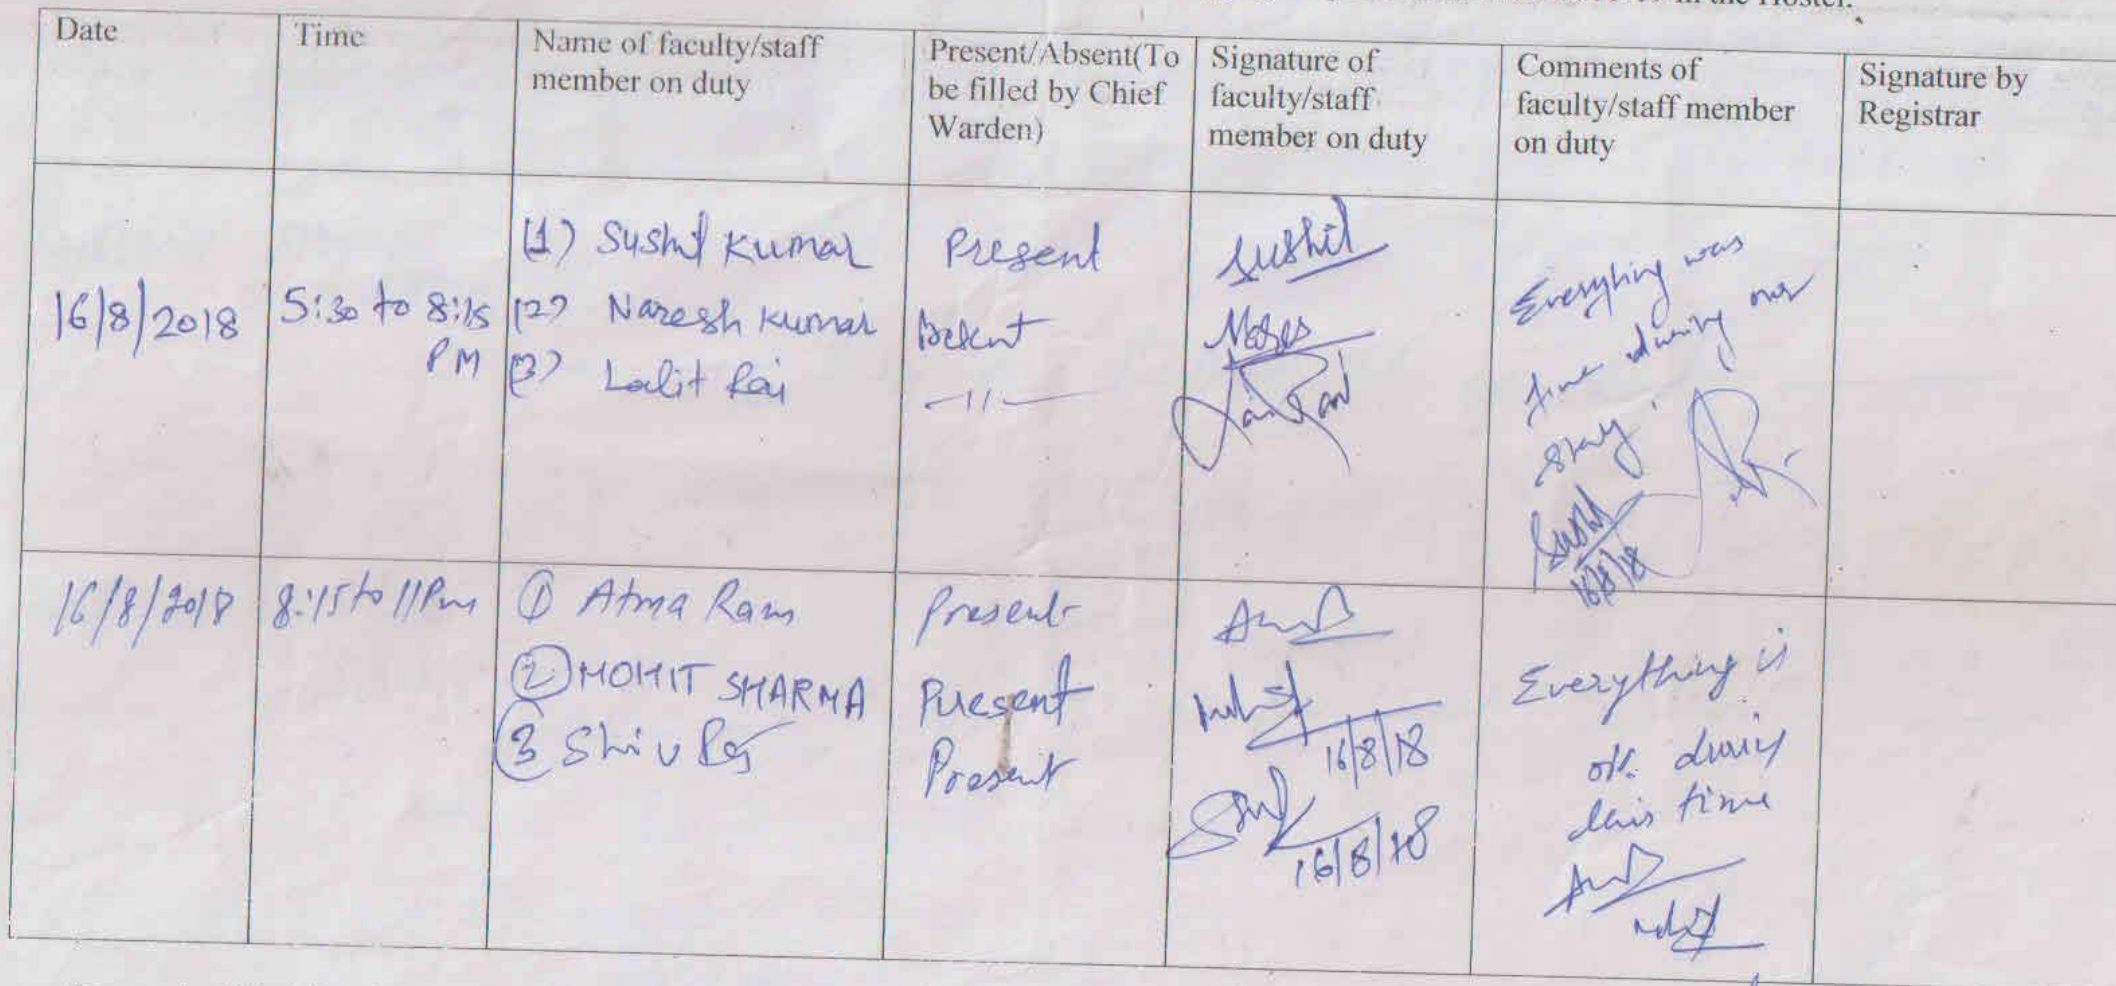 in the Hostel.
Date
Time
Name of faculty/staff
member on duty
Present/Absent(To
be filled by Chief
Warden)
Signature of
faculty/staff
member on duty
Comments of
faculty/staff member
on duty
Signature by
Registrar
16/8/2018
5:30 to 8:15
PM
(1) Sushil Kumar
(2) Naresh Kumar
(3) Lalit Raj
Present
Present
-11-
Sushil
Everything was
fine during our
stay.
Sushil
16/8/18
16/8/2018
8:15 to 11 Pm
① Atma Ram
② MOHIT SHARMA
③ Shiv Raj
Present
Present
Present
16/8/18
16/8/18
Everything is
ok. during
this time